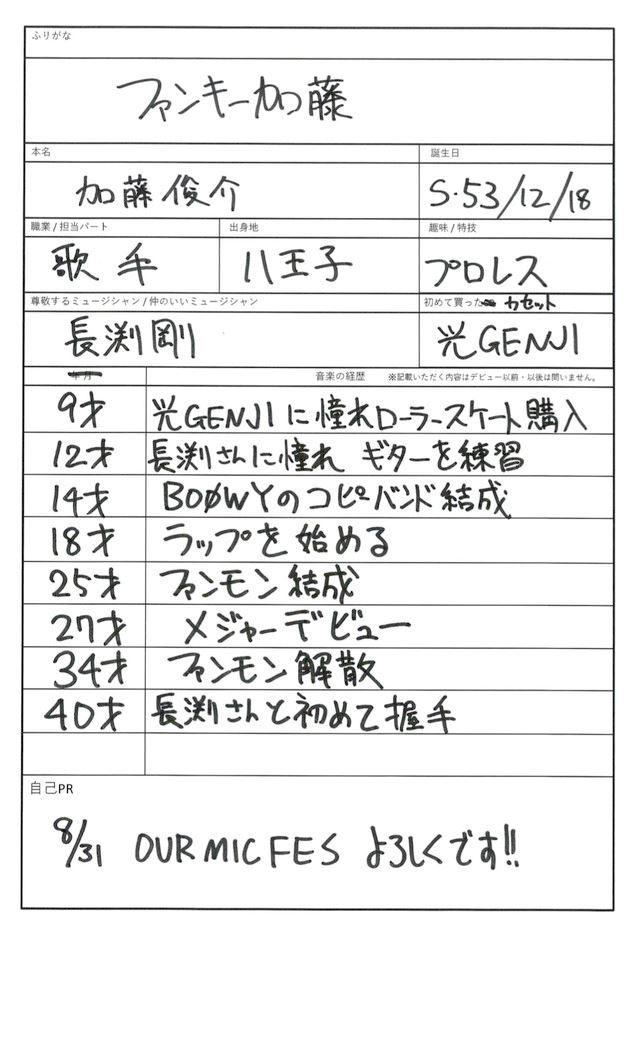 ふりがな
ファンキー加藤
本名
誕生日
加藤俊介
S.53/12/18
職業/担当パート
出身地
趣味/特技
歌手
八王子
プロレス
尊敬するミュージシャン/仲のいいミュージシャン
初めて買った カセット
長渕剛
光GENJI
年月
音楽の経歴 ※記載いただく内容はデビュー以前・以後は問いません。
9才 光GENJIに憧れローラースケート購入
12才 長渕さんに憧れ ギターを練習
14才 BOØWYのコピーバンド結成
18才 ラップを始める
25才 ファンモン結成
27才 メジャーデビュー
34才 ファンモン解散
40才 長渕さんと初めて握手
自己PR
8/31 OUR MIC FES よろしくです!!